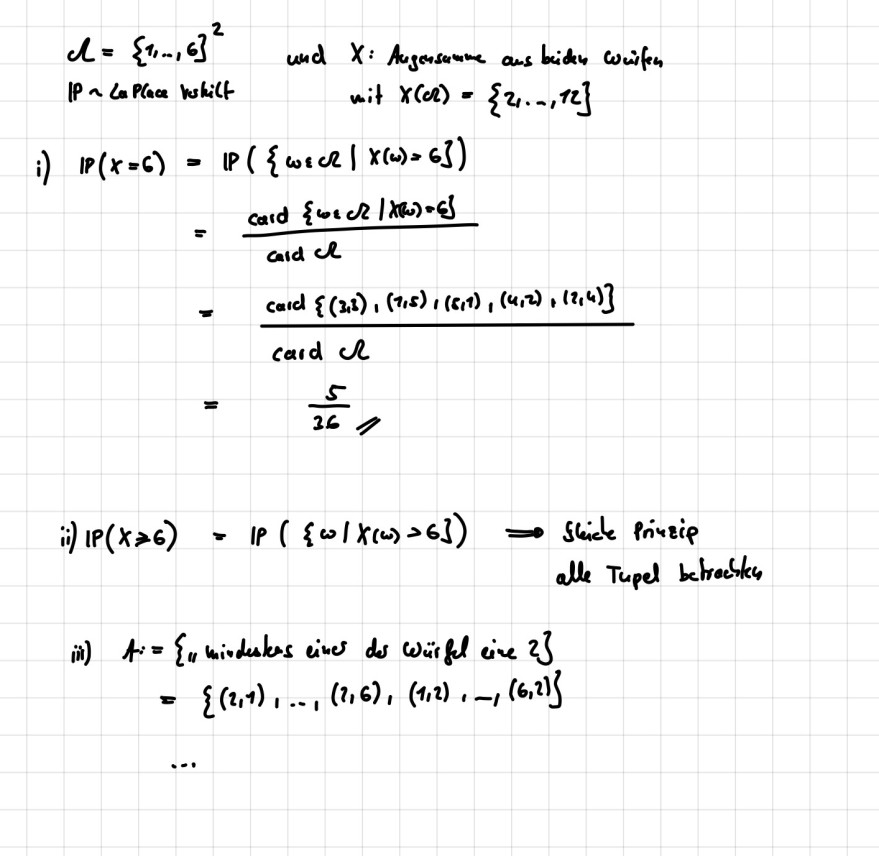 Ω = {1,..,6}² und X: Augensumme aus beiden Würfen
IP ~ LaPlace verteilt mit X(Ω) = {2,..,12}
i) IP(X=6) = IP({ω∈Ω | X(ω)=6})
= card {ω∈Ω | X(ω)=6}
card Ω
= card {(3,3), (1,5), (5,1), (4,2), (2,4)}
card Ω
= 5
36 //
ii) IP(X>6) = IP ({ω | X(ω) >6}) ⟹ Gleiche Prinzip
alle Tupel betrachten
iii) A:= {„mindestens einer der Würfel eine 2}
= {(2,1), .., (2,6), (1,2), .., (6,2)}
...